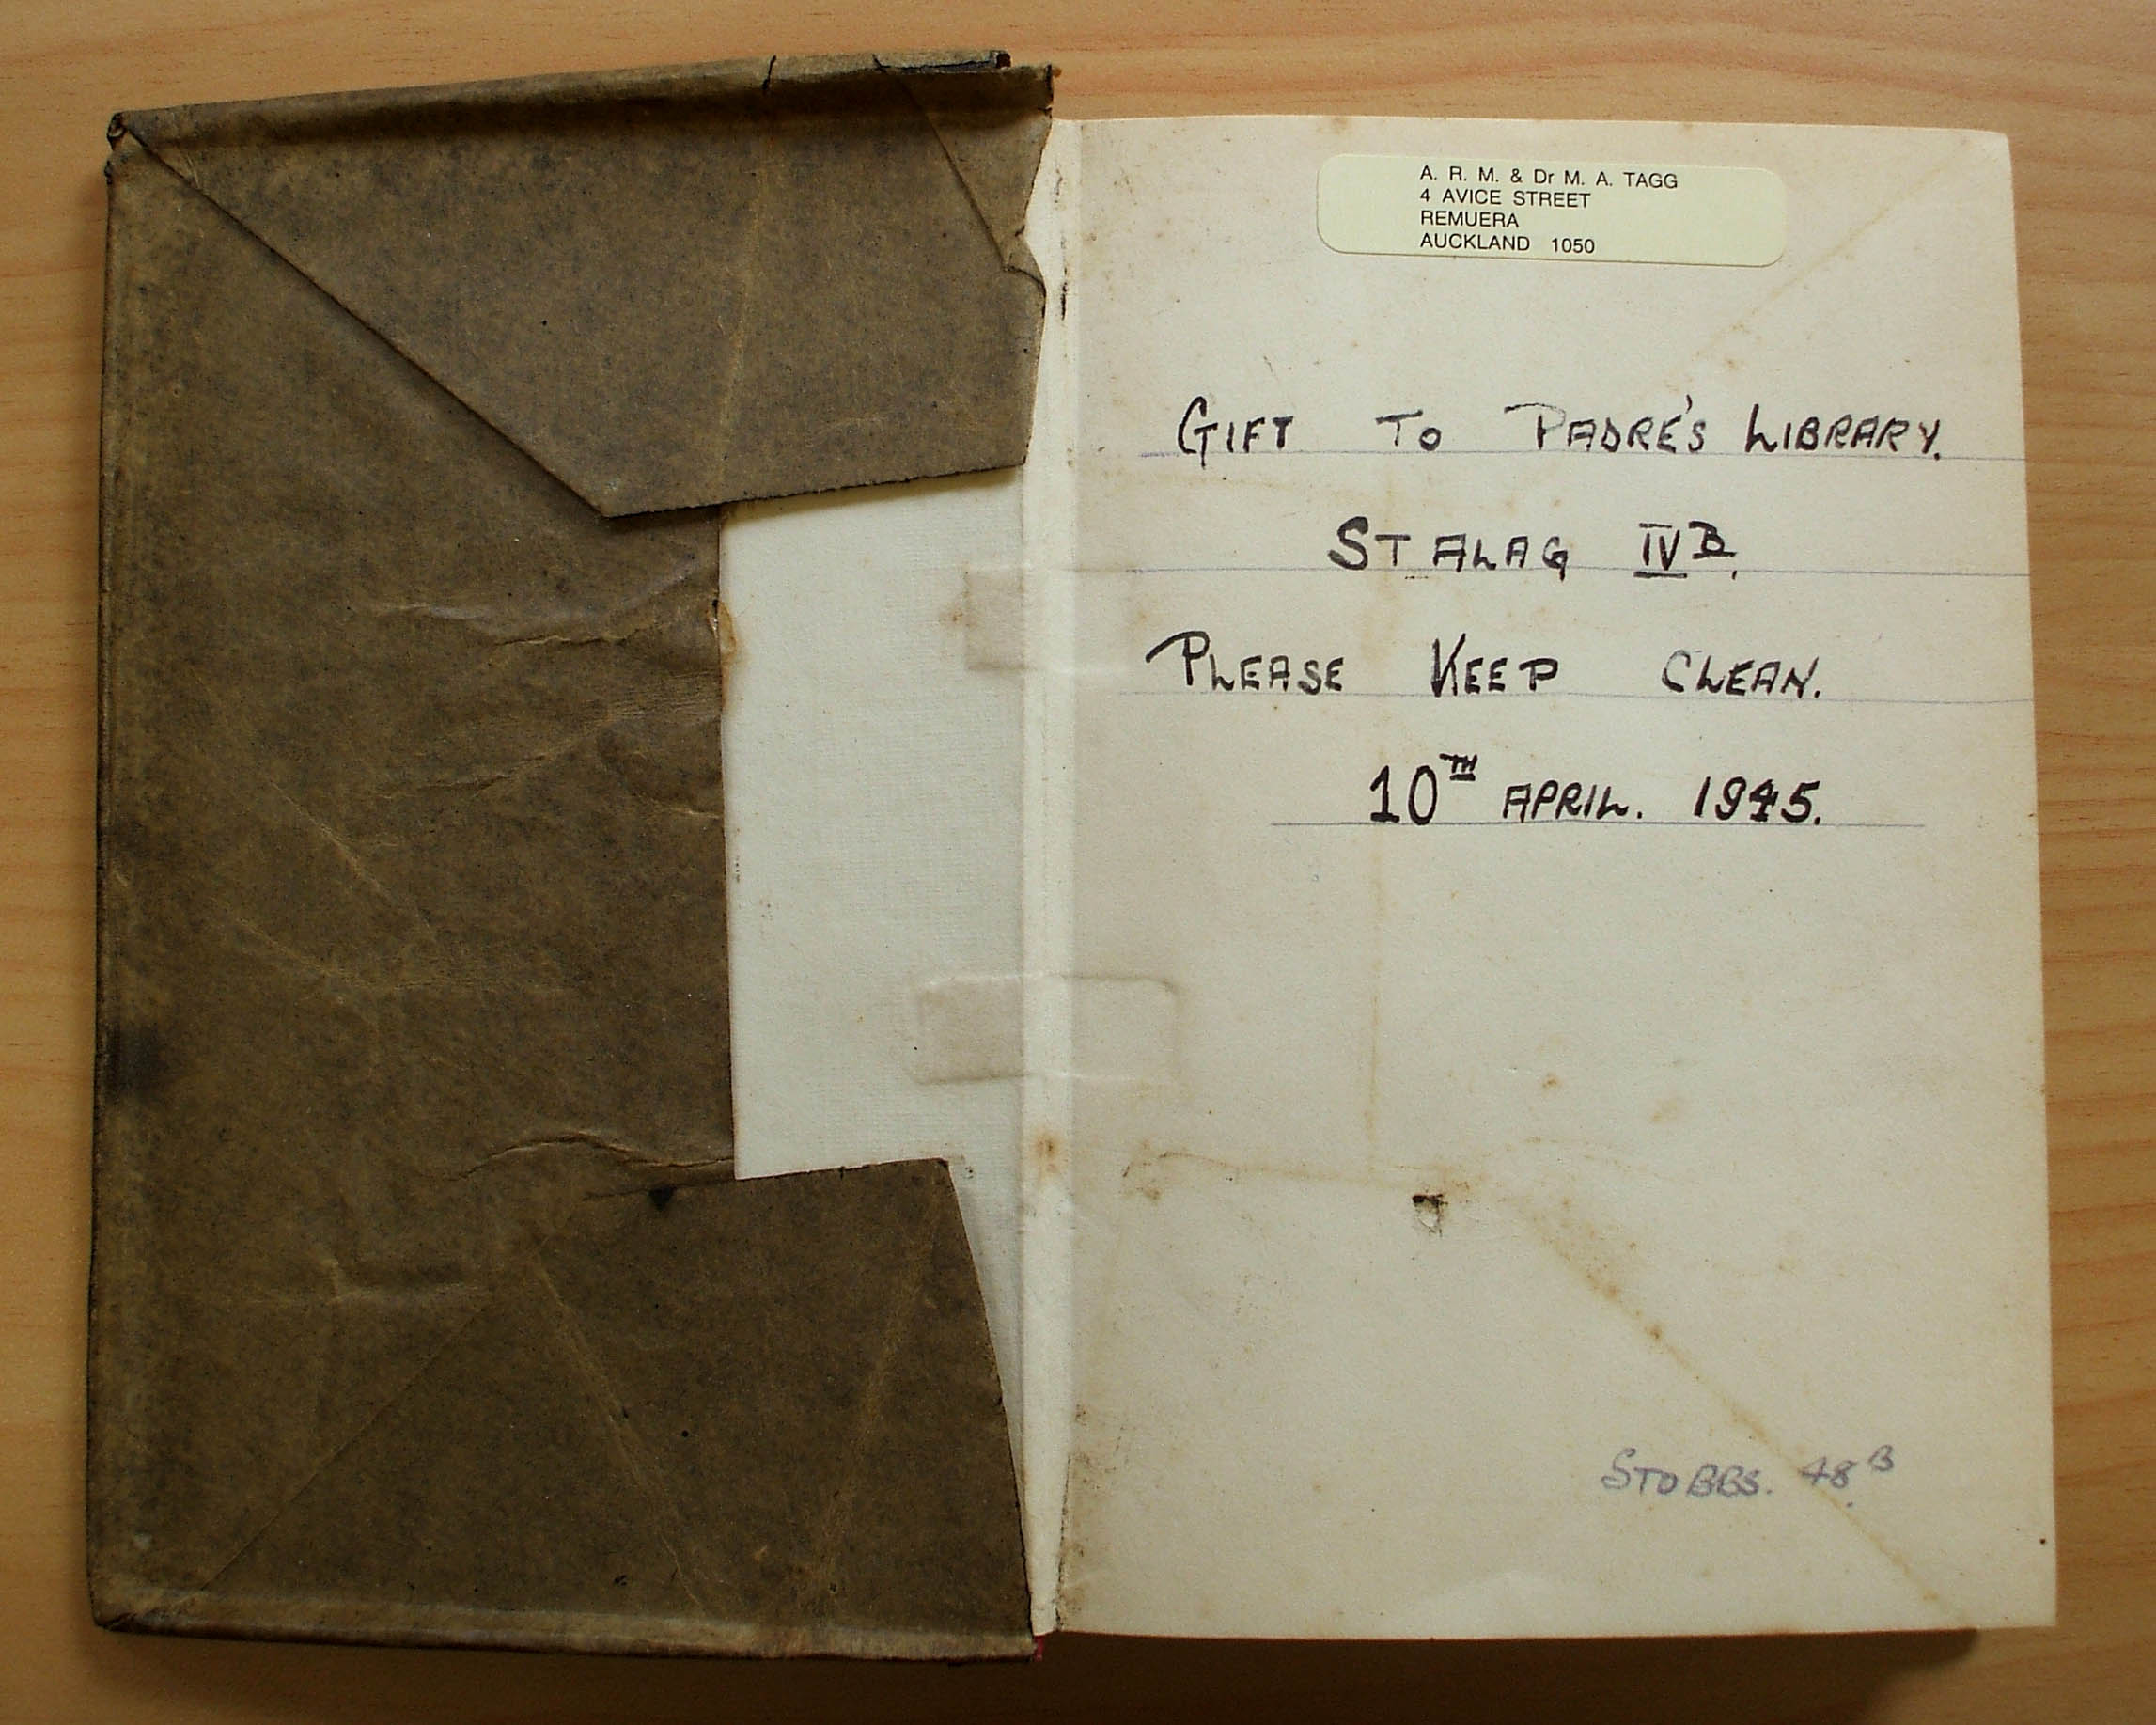 A. R. M. & Dr M. A. TAGG
4 AVICE STREET
REMUERA
AUCKLAND 1050
GIFT TO PADRÉ'S LIBRARY.
STALAG IVB.
PLEASE KEEP CLEAN.
10TH APRIL. 1945.
STOBBS. 48B.